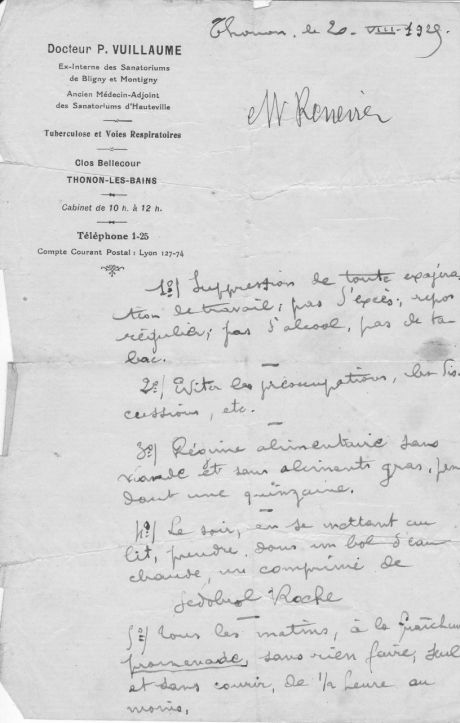 Docteur P. VUILLAUME
Ex-Interne des Sanatoriums
de Bligny et Montigny
Ancien Médecin-Adjoint
des Sanatoriums d'Hauteville
Tuberculose et Voies Respiratoires
Clos Bellecour
THONON-LES-BAINS
Cabinet de 10 h. à 12 h.
Téléphone 1-25
Compte Courant Postal : Lyon 127-74
Thonon, le 20 - VIII - 1929.
Mr Renevier
1º/ Suppression de toute exagéra
tion de travail; pas d'excès; repos
régulier; pas d'alcool, pas de ta
bac.
2º/ Eviter les préoccupations, les dis
cussions, etc.
3º/ Régime alimentaire sans
viande et sans aliments gras, pen
dant une quinzaine.
4º/ Le soir, en se mettant au
lit, prendre, dans un bol d'eau
chaude, un comprimé de
Sedobrol Roche
5º/ Tous les matins, à la fraîcheur
promenade, sans rien faire, seul
et sans courir, de 1/2 heure au
moins.